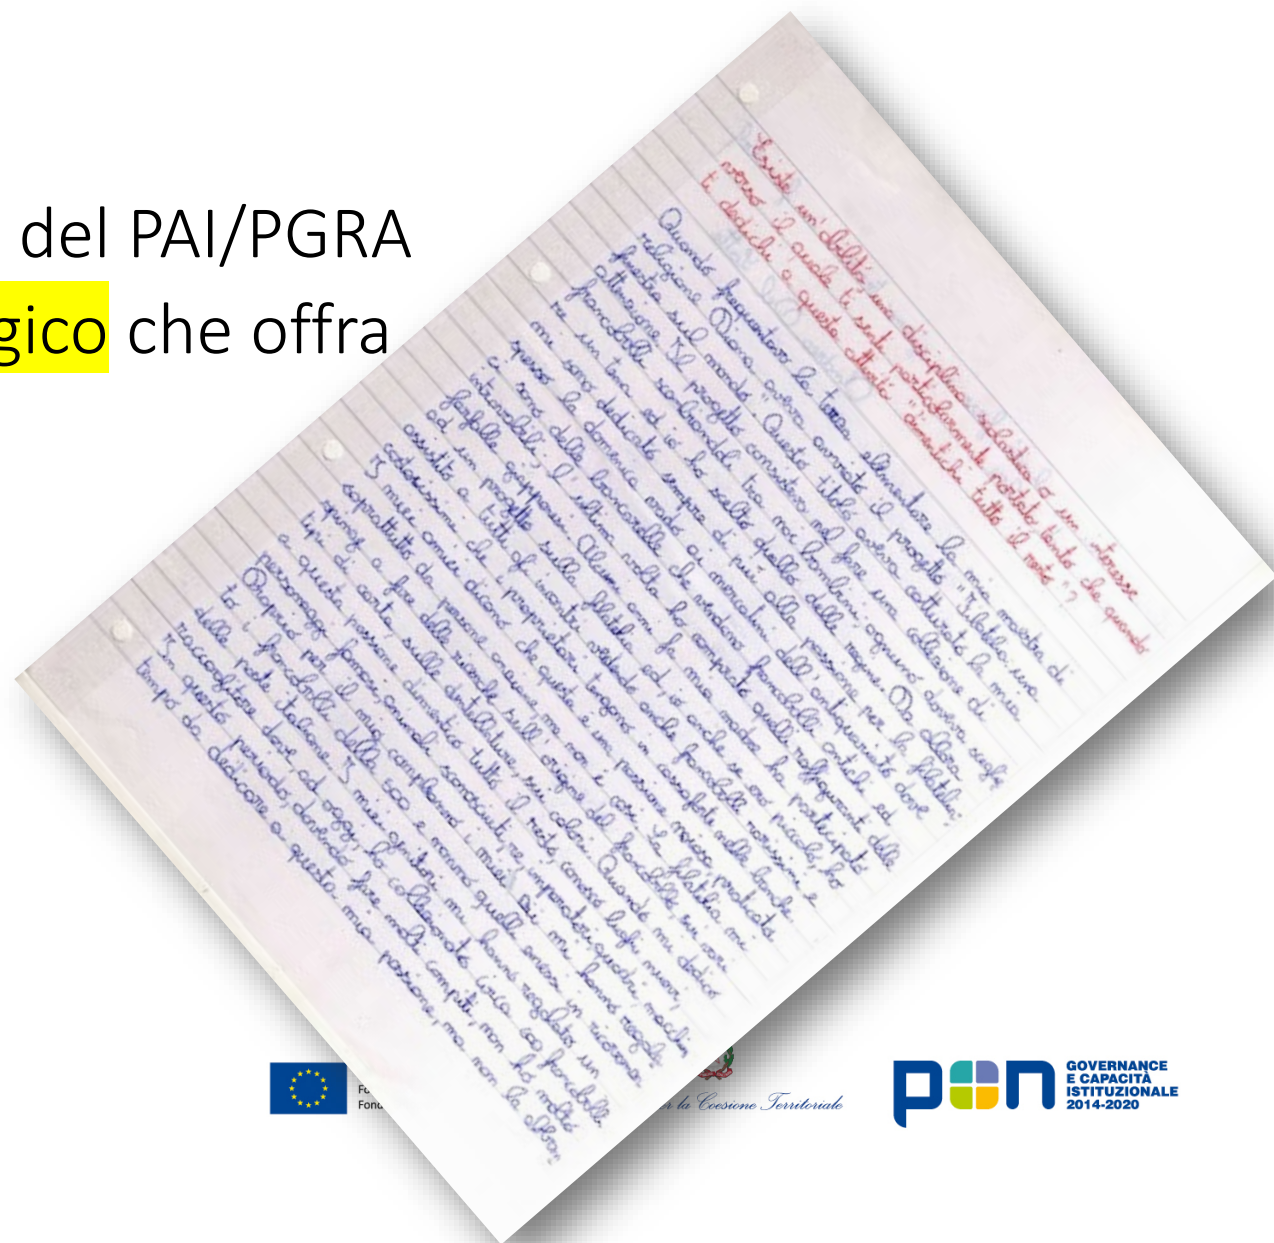 del PAI/PGRA
gico che offra
Esiste un'abilità, una disciplina scolastica o un interesse
verso il quale ti senti particolarmente portato tanto che quando
ti dedichi a questa attività "dimentichi tutto il resto"?
Quando frequentavo la terza elementare la mia maestra di
religione Diana aveva avviato il progetto "Filatelia, una
finestra sul mondo". Questo titolo aveva catturato la mia
attenzione. Il progetto consisteva nel fare una collezione di
francobolli scambiandoli tra noi bambini, ognuno doveva scegli
re un tema ed io ho scelto quello delle regine. Da allora
mi sono dedicato sempre di più alla passione per la filatelia,
spesso la domenica vado ai mercatini dell'antiquariato dove
ci sono delle bancarelle che vendono francobolli antichi ed
introvabili, l'ultima volta ho comprato quelli raffiguranti delle
farfalle giapponesi. Alcuni anni fa mia madre ha partecipato
ad un progetto sulla filatelia ed io, anche se ero piccolo, ho
assistito a tutti gli incontri vedendo anche francobolli rarissimi e
costosissimi che i proprietari tengono in cassaforte nelle banche.
I miei amici dicono che questa è una passione noiosa, praticata
soprattutto da persone anziane, ma non è così. La filatelia mi
spinge a fare delle ricerche sull'origine del francobollo sui vari
tipi di carta, sulle dentellature, sui colori. Quando mi dedico
a questa passione dimentico tutto il resto, conosco luoghi nuovi,
personaggi famosi, animali sconosciuti, re, imperatori, quadri, macchin
Proprio per il mio compleanno i miei zii mi hanno regala
to i francobolli della 500 e nonno quelli emessi in ricorrenza
della italiane. I miei genitori mi hanno regalato un
raccoglitore dove ad oggi, ho collezionato circa 600 francobolli.
In questo periodo, dovendo fare molti compiti, non ho molto
tempo da dedicare a questa mia passione, ma non la
Fo
Fond
r la Coesione Territoriale
pon
GOVERNANCE
E CAPACITÀ
ISTITUZIONALE
2014-2020